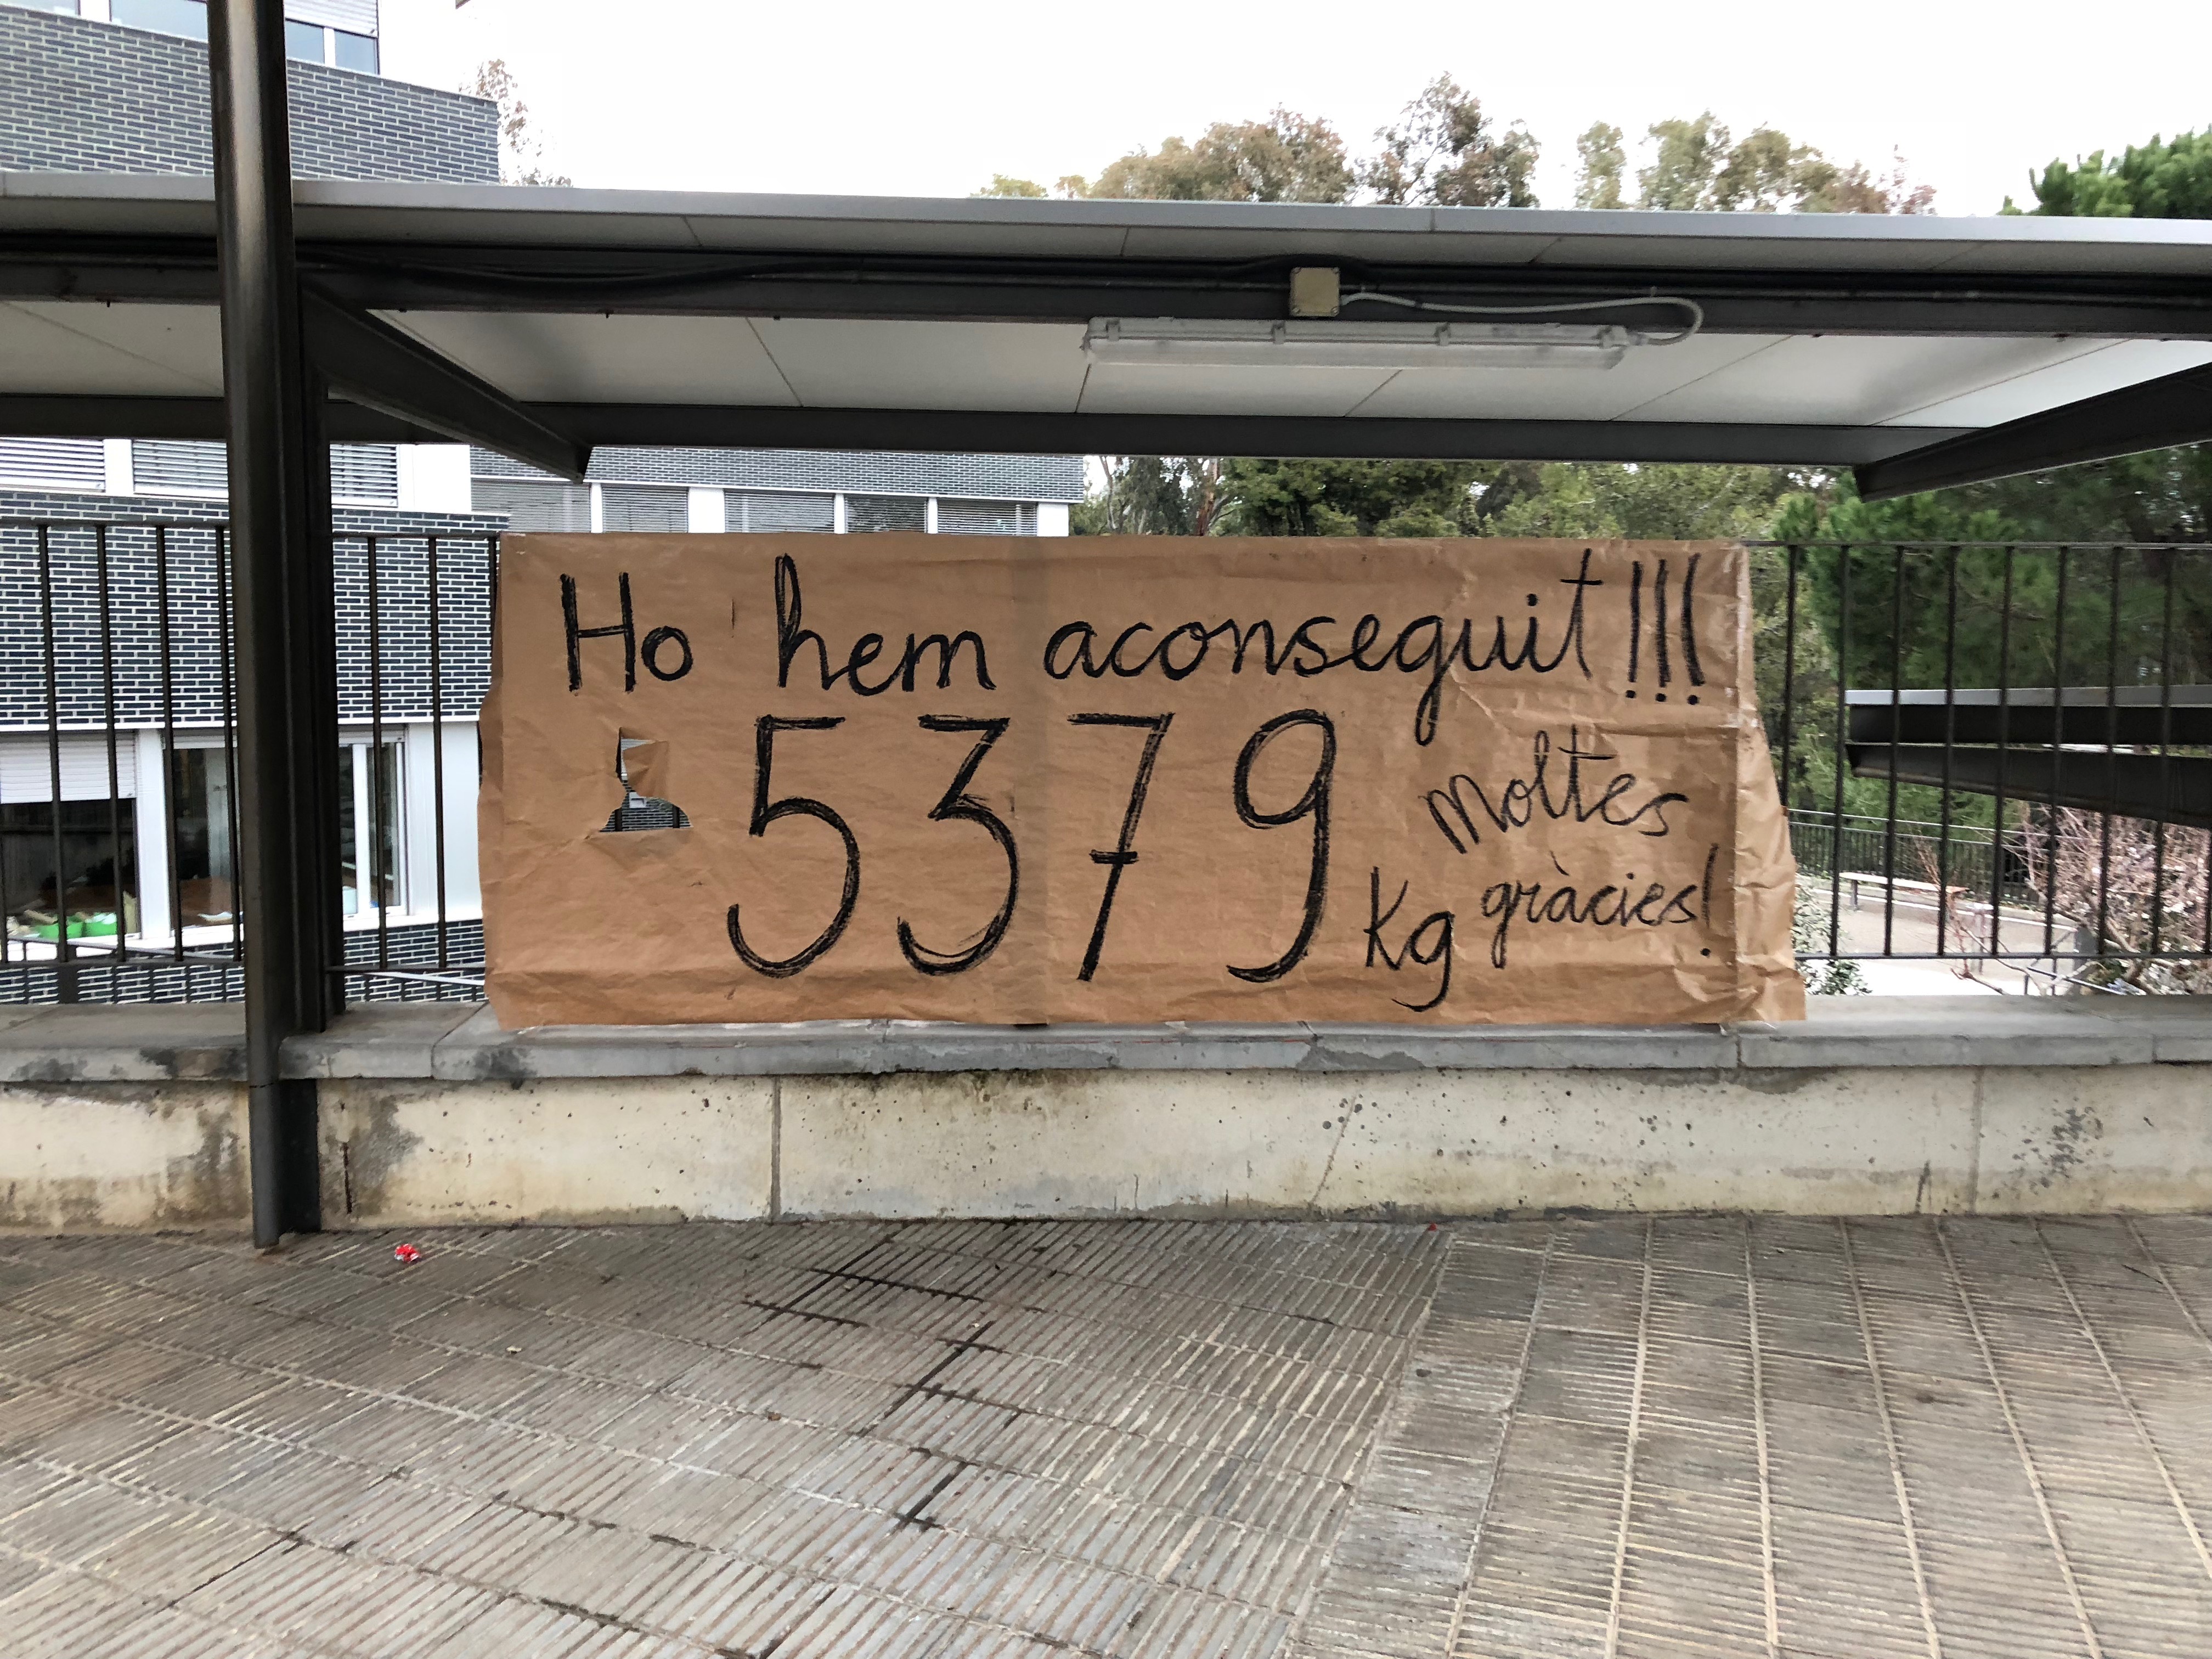 Ho hem aconseguit!!!
5379 Kg
moltes
gràcies!